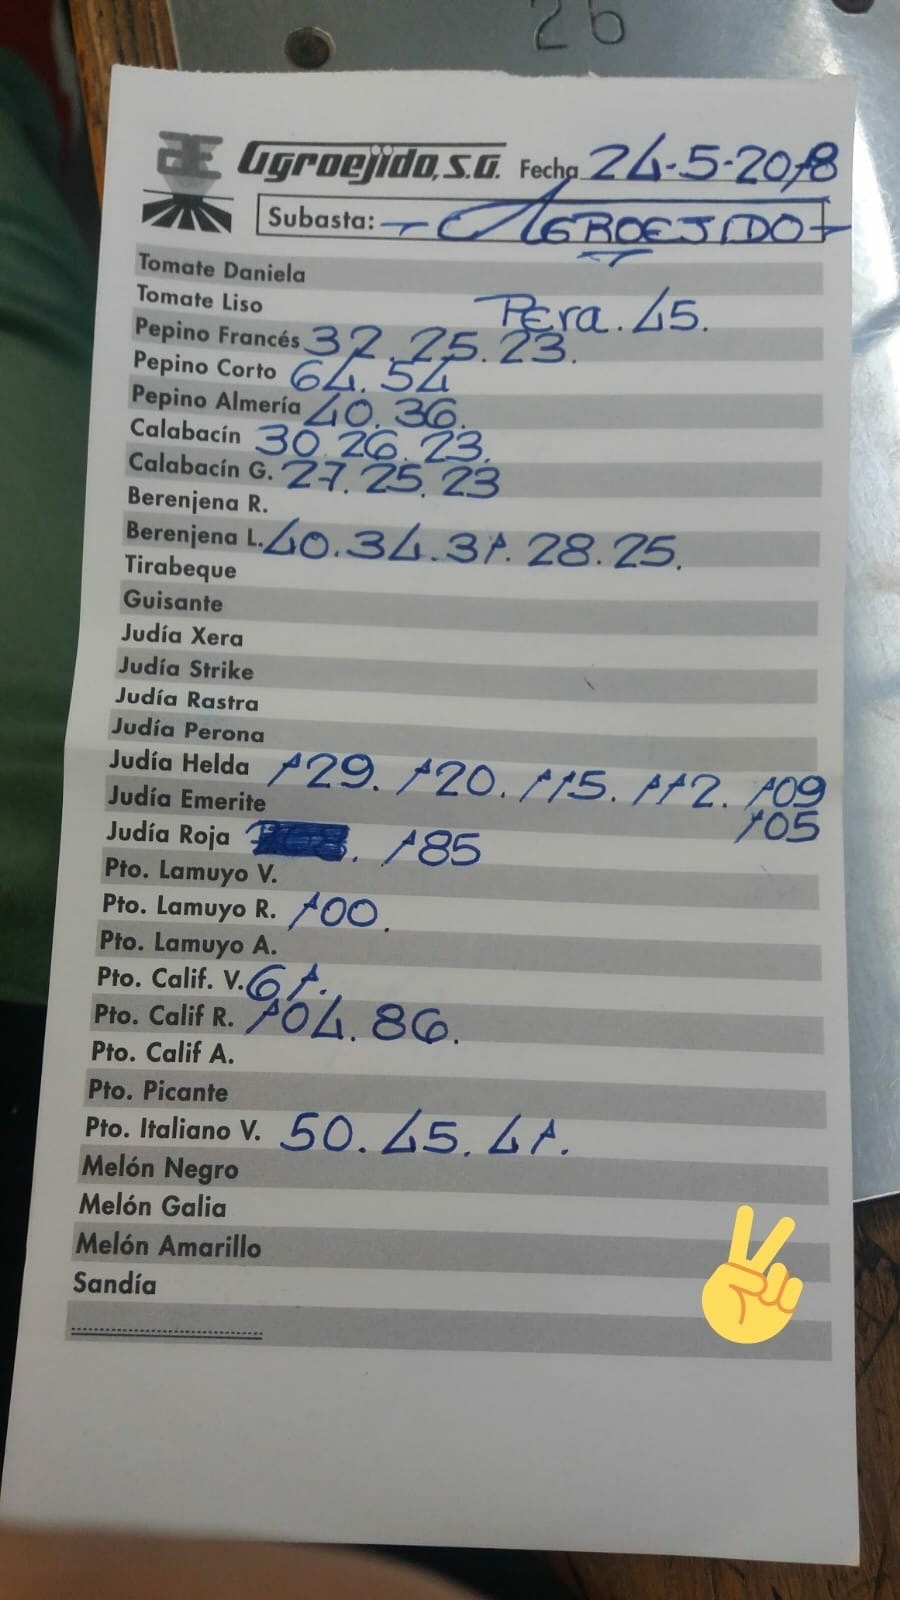 26
Agroejido, S.A. Fecha 24-5-2018
Subasta: - AGROEJIDO -
Tomate Daniela
Tomate Liso Pera. 45.
Pepino Francés 32. 25. 23.
Pepino Corto 64. 54
Pepino Almería 40. 36.
Calabacín 30. 26. 23.
Calabacín G. 27. 25. 23
Berenjena R.
Berenjena L. 40. 34. 31. 28. 25.
Tirabeque
Guisante
Judía Xera
Judía Strike
Judía Rastra
Judía Perona
Judía Helda 129. 120. 115. 112. 109
Judía Emerite 105
Judía Roja . 185
Pto. Lamuyo V.
Pto. Lamuyo R. 100.
Pto. Lamuyo A.
Pto. Calif. V. 61.
Pto. Calif R. 104. 86.
Pto. Calif A.
Pto. Picante
Pto. Italiano V. 50. 45. 41.
Melón Negro
Melón Galia
Melón Amarillo
Sandía